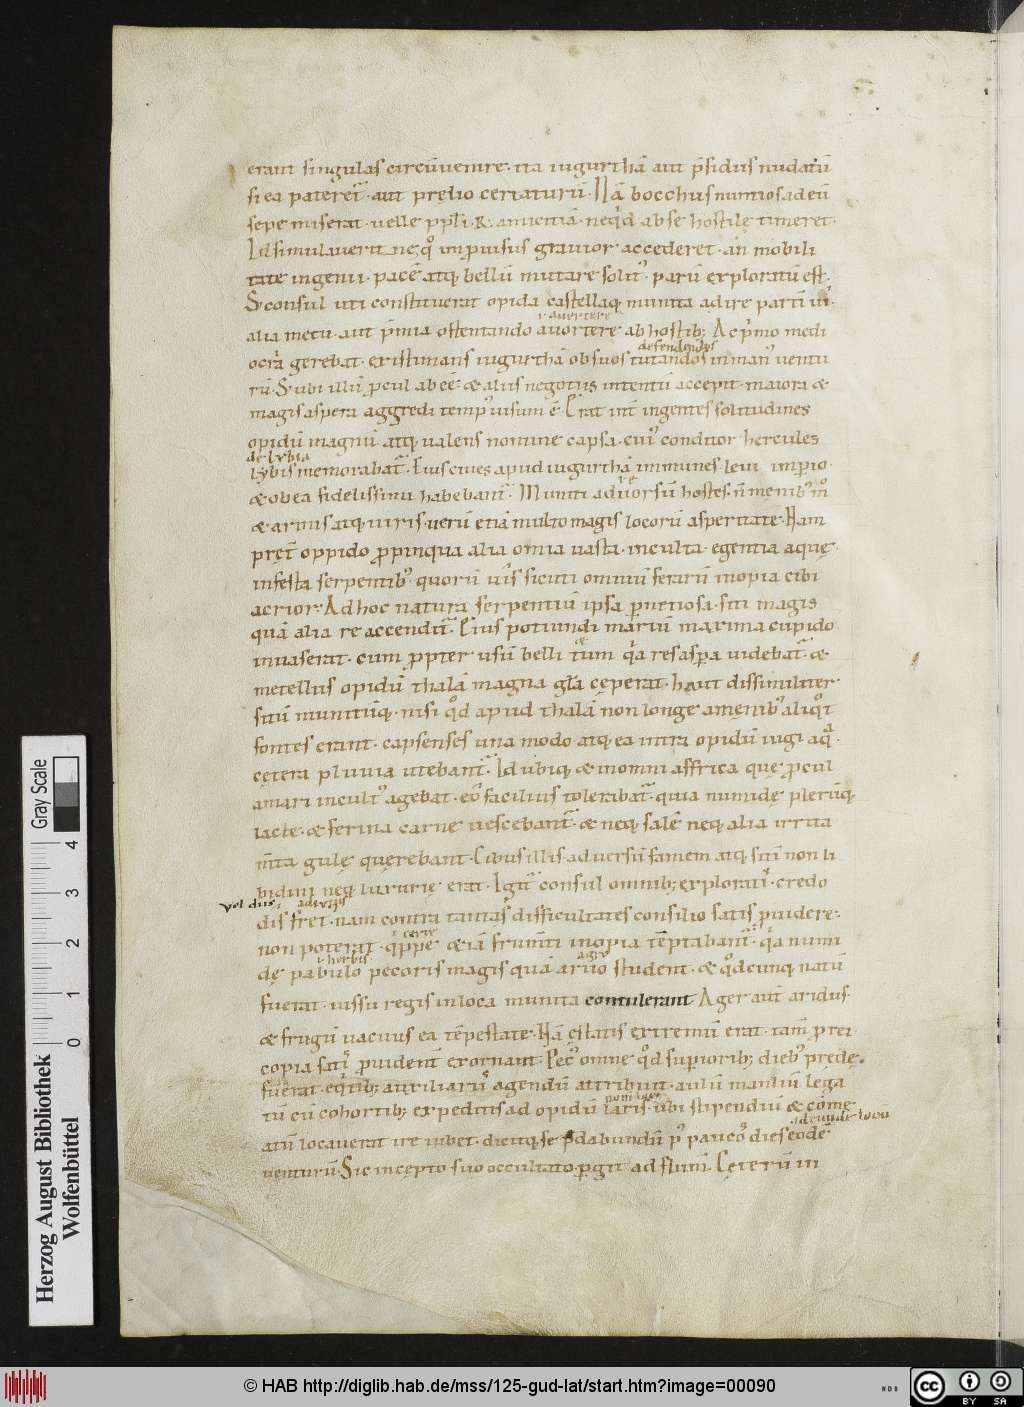 erant singulas circūvenire. ita iugurthā aut p̄sidiis nudatū
si ea pateret᷑. aut prelio certaturū. Nā bocchus nuntios ad eū
sepe miserat. uelle pp̄li .R. amicitiā. neq̇d ab se hostile timeret.
Id simulauerit ne quo inprouisus grauior accederet. an mobili
tate ingenii. pacē atq; bellū mutare solit᷒. parū exploratū est.
S; consul uti constituerat opida castellaq; munita adire partī ui.
ł auertere
alia metu. aut p̄mia ostentando auortere ab hostib; Ac p̍mo medi
defendendos
ocrit̄ gerebat. existimans iugurthā ob suos tutandos in man᷒ uentu
rū. S; ubi illū ꝓcul abeē. & aliis negotiis intentū accepit. maiora &
magis aspera aggredi temp᷒ uisum ē. Erat int̄ ingentes solitudines
opidū magnū atq; ualens nomine capsa. cui᷒ conditor hercules
de lybia
lybis memorabat᷑. Eius ciues apud iugurthā inmunes. leui inꝑio.
& ob ea fidelissimi habebant᷑. Muniti aduorsū hostes. n̄ menib᷒ m̊
& armis atq; uiris. uerū etiā multo magis locorū asperitate. Nam
pret̄ oppido ꝓpinqua alia omia uasta. inculta. egentia aque.
infesta serpentib᷒. quorū uis sicuti omniū ferarū inopia cibi
acrior. Ad hoc natura serpentiū ipsa ꝑnitiosa. siti magis
quā alia re accendit᷑. Eius potiundi mariū maxima cupido
inuaserat. cum ꝓpter usū belli tum q̍a res asꝑa uidebat᷑. &
metellus opidū thalā magna gl̄a ceperat. haut dissimiliter
sitū munitūq;. nisi q̊d apud thalā non longe a menib᷒ aliq̊t
fontes erant. capsenses una modo atq; ea intra opidū iugi aq̄.
cetera pluuia utebant᷑. Id ubiq; & in omni affrica que ꝓcul
a mari incult᷒ agebat. eo facilius tolerabat᷑. quia numide plerūq;
lacte. & ferina carne uescebant᷑. & neq; salē neq; alia irrita
m̄ta gule querebant. Cibus illis aduersū famem atq; sitī non li
bidini neq; luxurie erat. Igit᷑ consul omnib; explorati᷒. credo
vel diis
dis fret᷒. nam contra tantas difficultates consilio satis ꝓuidere.
ł certe
non poterat. q̍ppe & iā frum̄ti inopia tēptabat᷑. q̍a numi
ł herbis agro
de pabulo pecoris magis quā aruo student. & q̊dcunq; natū
fuerat. iussu regis in loca munita contulerant Ager aut̄ aridus.
& frugū uacuus ea tēpestate. Nā estatis extremū erat. tam̄ ꝓ rei
copia satis ꝓuident᷑ exornant. Pec᷒ omne q̊d suꝑiorib; dieb᷒ prede
fuerat. eq̍tib; auxiliarii᷒ agendū attribuit. aulū manliū lega
tū cū cohortib; expeditis ad opidū laris. ubi stipendiū & come
ad eundē locū
atū locauerat ire iubet. dicitq; se p̄dabundū p᷒ pauco᷒ dies eodē
uenturū. Sic incepto suo occultato. ꝑgit ad flum̄. Ceterū in
Herzog August Bibliothek
Wolfenbüttel
0 1 2 3 4
Gray Scale
© HAB http://diglib.hab.de/mss/125-gud-lat/start.htm?image=00090
cc BY SA